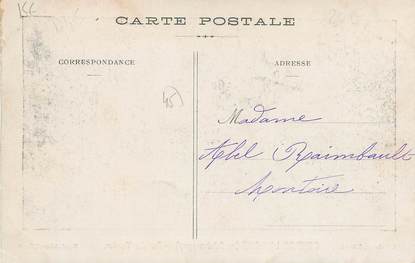 CARTE POSTALE
CORRESPONDANCE
ADRESSE
Madame
Abel Raimbault
Montoire